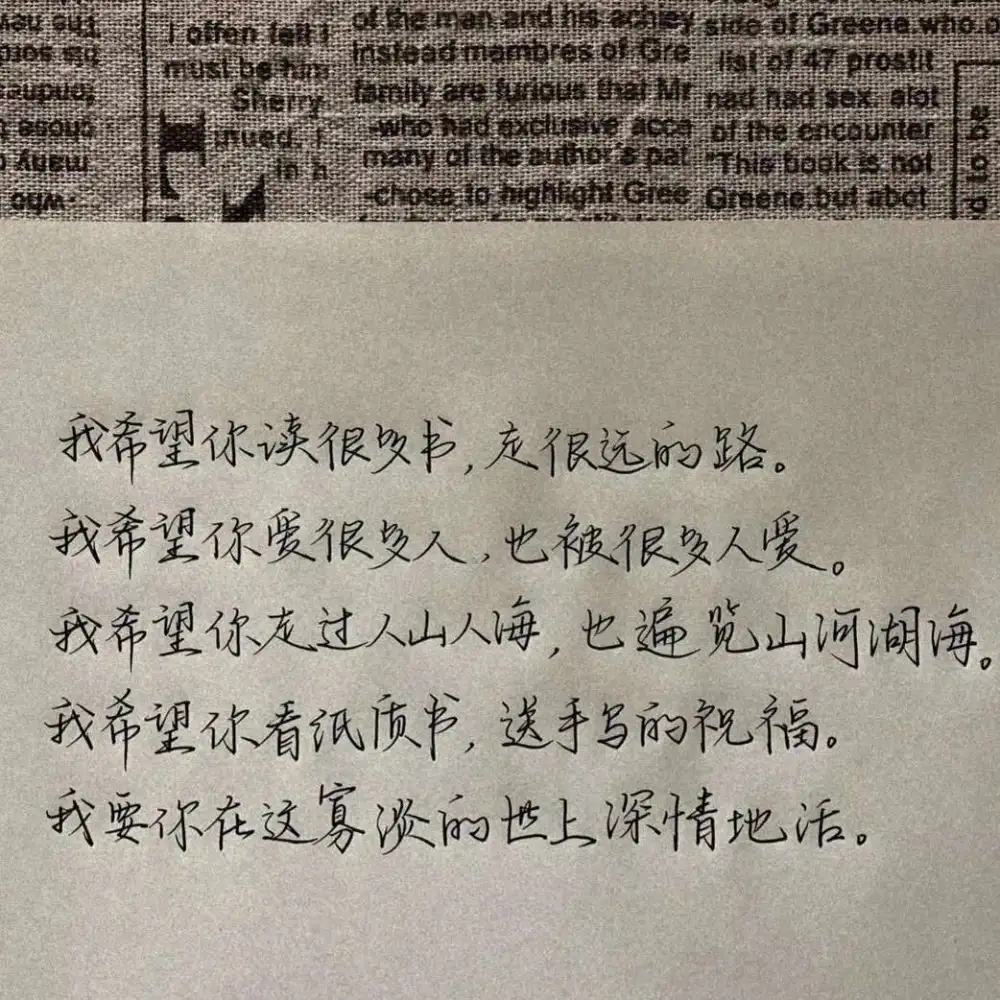 of the man and his achiev
instead mambres of Gre
family are furious that Mr
-who had exclusive acce
many of the author's pat
-chose to highlight Gree
side of Greene.who.o
list of 47 prostit
nad had sex. alot
of the encounter
"This book is not
Greene.but abot
I offen fell I
must be him
Sherry
inued. I
in h
d to be
many
who
我希望你读很多书,走很远的路。
我希望你爱很多人,也被很多人爱。
我希望你走过人山人海,也遍览山河湖海。
我希望你看纸质书,送手写的祝福。
我要你在这寡淡的世上深情地活。